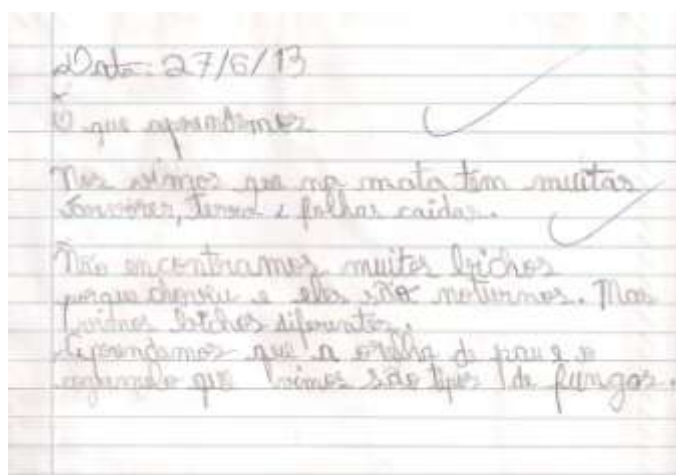 Data: 27/6/13
O que aprendemos
Nos vimos que na mata tem muitas
árvores, terra e folhas caidas.
Não encontramos muitos bichos
porque choveu e eles são noturnos. Mas
vimos bichos diferentes.
Aprendemos que a orelha de pau e o
cogumelo que vimos são tipos de fungos.